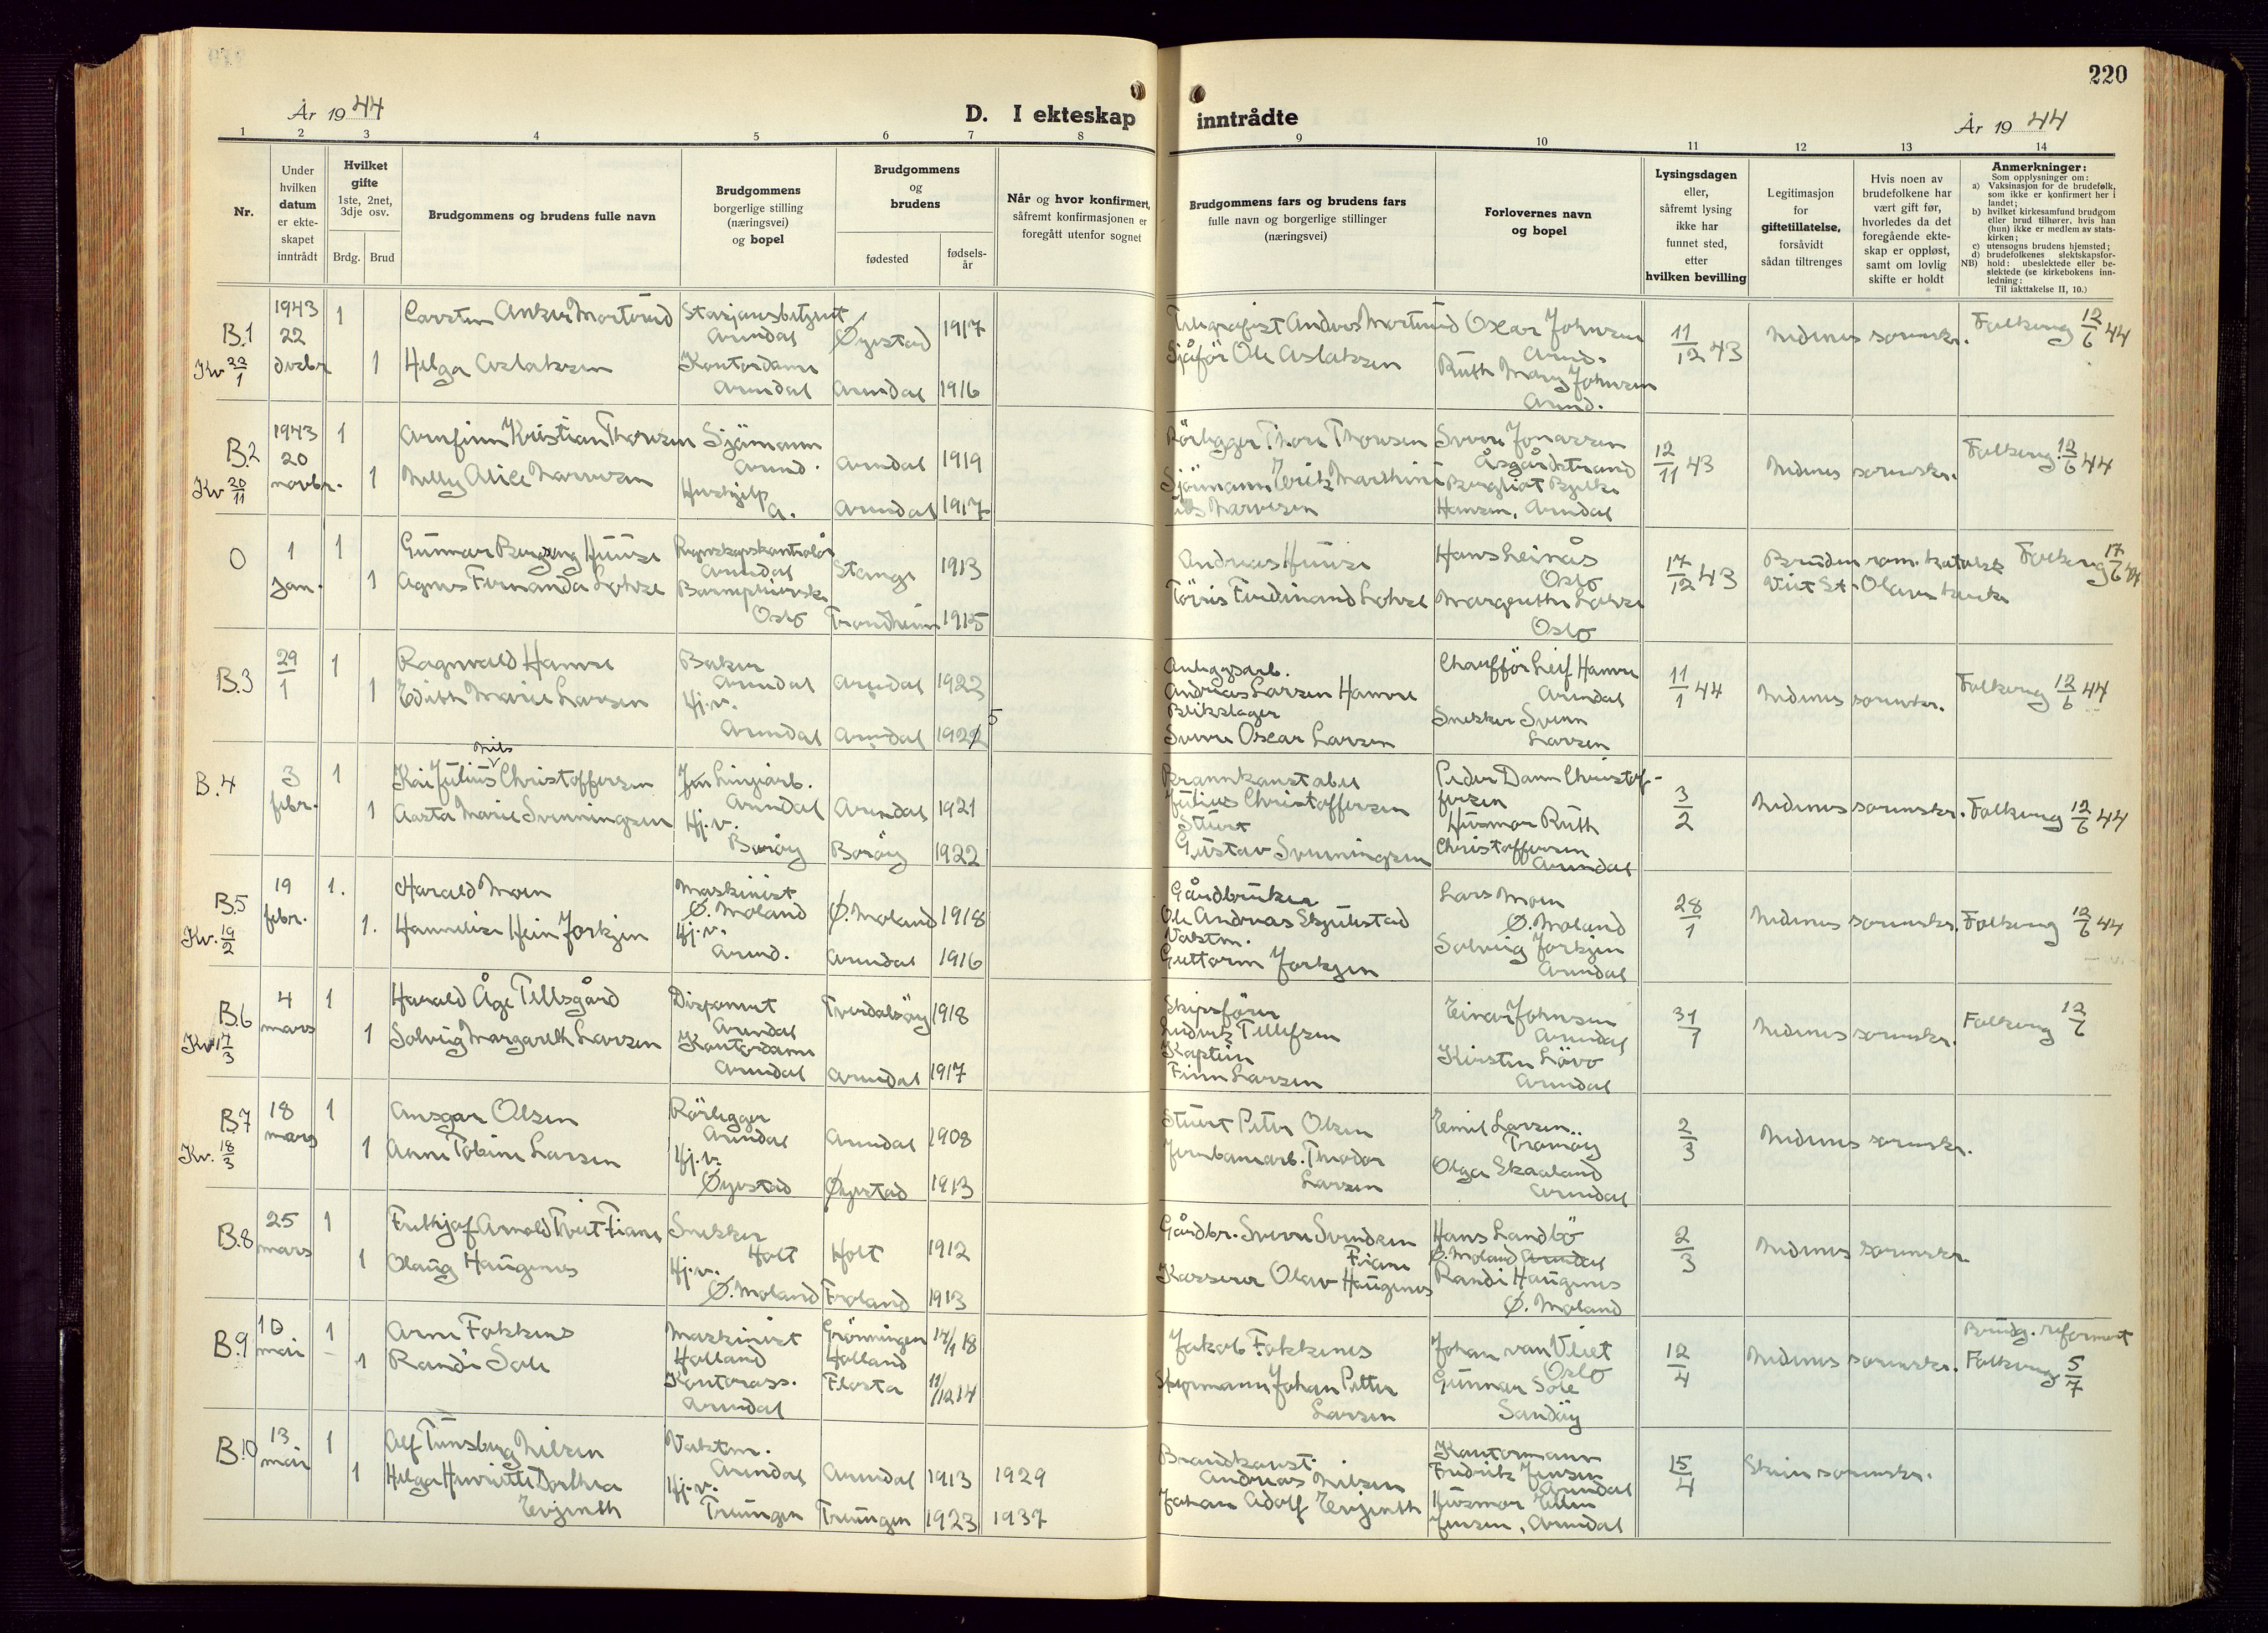 220
År 1944
D. I ekteskap inntrådte
År 1944
1 2 3 4 5 6 7 8 9 10 11 12 13 14
Nr.
Under hvilken datum er ekte-skapet inntrådt
Hvilket gifte 1ste, 2net, 3dje osv.
Brdg. Brud
Brudgommens og brudens fulle navn
Brudgommens borgerlige stilling (næringsvei) og bopel
Brudgommens og brudens
fødested
fødsels-år
Når og hvor konfirmert, såfremt konfirmasjonen er foregått utenfor sognet
Brudgommens fars og brudens fars fulle navn og borgerlige stillinger (næringsvei)
Forlovernes navn og bopel
Lysingsdagen eller, såfremt lysing ikke har funnet sted, etter hvilken bevilling
Legitimasjon for giftetillatelse, forsåvidt sådan tiltrenges
Hvis noen av brudefolkene har vært gift før, hvorledes da det foregående ekte-skap er oppløst, samt om lovlig skifte er holdt
Anmerkninger:
Som opplysninger om:
a) Vaksinasjon for de brudefolk, som ikke er konfirmert her i landet;
b) hvilket kirkesamfund brudgom eller brud tilhører, hvis han (hun) ikke er medlem av stats-kirken;
c) utensogns brudens hjemsted;
d) brudefolkenes slektskapsfor-hold; ubeslektede eller be-slektede (se kirkebokens inn-ledning:
NB) Til iakttakelse II, 10.)
B.1 Kv 22/1
1943 22 desbr
1 1
Carsten Anker Mortved
Helga Aslaksen
Stasjonsbetjent Arendal
Kontordame Arendal
Øyestad 1917
Arendal 1916
Telegrafist Anders
Sjåfør Ole Aslaksen
Oscar Johnsen Arend.
Ruth Mary Johnsen Arend.
11/12 43
Nedenes sorenskr.
Folkereg 12/6 44
B.2 Kv 20/11
1943 20 novbr.
1 1
Arnfinn Kristian Thorsen
Nelly Alice Narvesen
Sjømann Arend.
Hushjelp A.
Arendal 1919
Arendal 1917
Rørlegger Thore Thorsen
Sjømann Erik Marthini
Narvesen
Sverre Jonassen Åsgårdstrand
Bergliot Bjelke Hansen, Arendal
12/11 43
Nedenes sorenskr.
Folkereg. 12/6 44
0
1 jan.
1 1
Gunnar Huuse
Agnes Fernanda Lohse
Regnskapskontrolør Arendal
Barnepleierske Oslo
Stange 1913
Trondheim 1915
Andreas Huuse
Tørris Ferdinand Lohse
Hans Leirås Oslo
Margrethe Lohse Oslo
17/12 43
Bruden rom. katolsk
Viet St. Olavs kirke
Folkereg 17/6 44
B.3
29/1
1 1
Ragnvald Hamre
Edith Marie Larsen
Baker Arendal
Hj.v. Arendal
Arendal 1923
Arendal 1922 5
Anleggsarb.
Andreas Larsen Hamre
Blikslager
Sverre Oscar Larsen
Chauffør Leif Hamre Arendal
Snekker Svenn Larsen
11/1 44
Nedenes sorenskr.
Folkereg 12/6 44
B.4
3 febr.
1 1
Kai Julius Nils Christoffersen
Aasta Marie Svenningsen
Arendal
Hj.v. Borøy
Arendal 1921
Borøy 1922
Brannkonstabel
Julius Christoffersen
Stuert
Gustav Svenningsen
Peder Dann Christof-fersen
Husmor Ruth Christoffersen Arendal
3/2
Nedenes sorenskr.
Folkereg 12/6 44
B.5 Kv. 19/2
19 febr.
1. 1.
Harald Moen
Hannelise Hein Jorkjen
Maskinist Ø. Moland
Hj.v. Arend.
Ø. Moland 1918
Arendal 1916
Gårdbruker
Ole Andreas Skjulestad
Vaktm.
Guttorm Jorkjen
Lars Moen Ø. Moland
Solveig Jorkjen Arendal
28/1
Nedenes sorenskr.
Folkereg 12/6 44
B.6 Kv 17/3
4 mars
1 1
Harald Åge Tellsgård
Solveig Margareth Larsen
Disponent Arendal
Kontordame Arendal
Tverdalsøy 1918
Arendal 1917
Skipsfører
Ludvig Tellefsen
Kaptein
Finn Larsen
Einar Johnsen Arendal
Kirsten Løvo Arendal
31/1
Nedenes sorenskr.
Folkereg 12/6
B.7 Kv. 18/3
18 mars
1 1
Ansgar Olsen
Anne Tobine Larsen
Rørlegger Arendal
Hj.v. Øyestad
Arendal 1908
Øyestad 1913
Stuert Peter Olsen
Jernbanearb. Theodor Larsen
Emil Larsen Tromøy
Olga Skaaland Arendal
2/3
Nedenes sorenskr.
B.8
25 mars
1 1
Frithjof Arnold Tveit Fiane
Olaug Haugenes
Snekker Holt
Hj.v. Ø. Moland
Holt 1912
Froland 1913
Gårdbr. Sverre Svendsen Fiane
Kasserer Olav Haugenes
Hans Landbö
Ø. Moland Arendal
Randi Haugenes Ø. Moland
2/3
Nedenes sorenskr.
B.9
10 mai
1 1
Arne Fokkens
Randi Sole
Maskinist Holland
Kontorass. Arendal
Grönningen Holland 14/1 18
Flosta 11/12 14
Jakob Fokkens
Skipsmann Johan Petter Larsen
Johan van Vliet Oslo
Gunnar Sole Sandøy
12/4
Nedenes sorenskr.
Brudg. reformert
Folkereg 5/7
B.10
13 mai
1 1
Alf Tunsberg Nilsen
Helga Henriette Dorthea Evjenth
Vaktm. Arendal
Hj.v. Treungen
Arendal 1913 1929
Treungen 1923 1937
Brandkonst. Andreas Nilsen
Johan Adolf Evjenth
Kontormann Fredrik Jensen Arendal
Husmor Ellen Jensen, Arendal
15/4
Skien sorenskr.